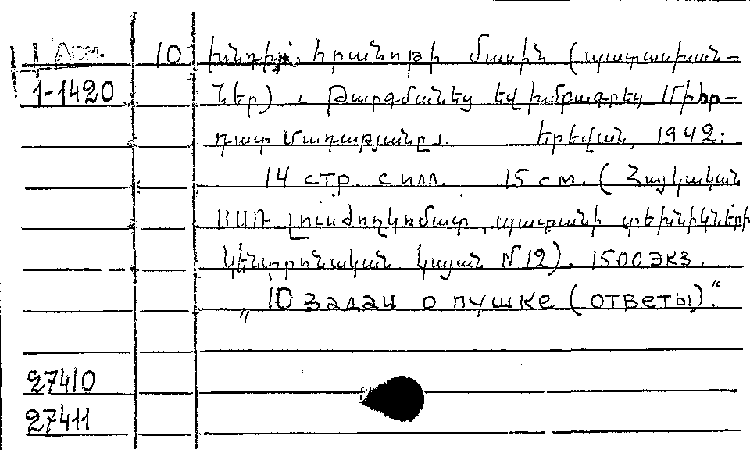 1 Арм. 10 խնդիր հրանոթի մասին (պատասխան-
1-1420 ներ). Թարգմանեց եվ խմբագրեց Միհր-
դատ Մադաթյանը. Երեվան, 1942:
14 стр. с илл. 15 см. (Հայկական
ՍՍՌ Լուսժողկոմատ, պատանի տեխնիկների
կենտրոնական կայան N 12). 1500 экз.
„10 задач о пушке (ответы)."
27410
27411